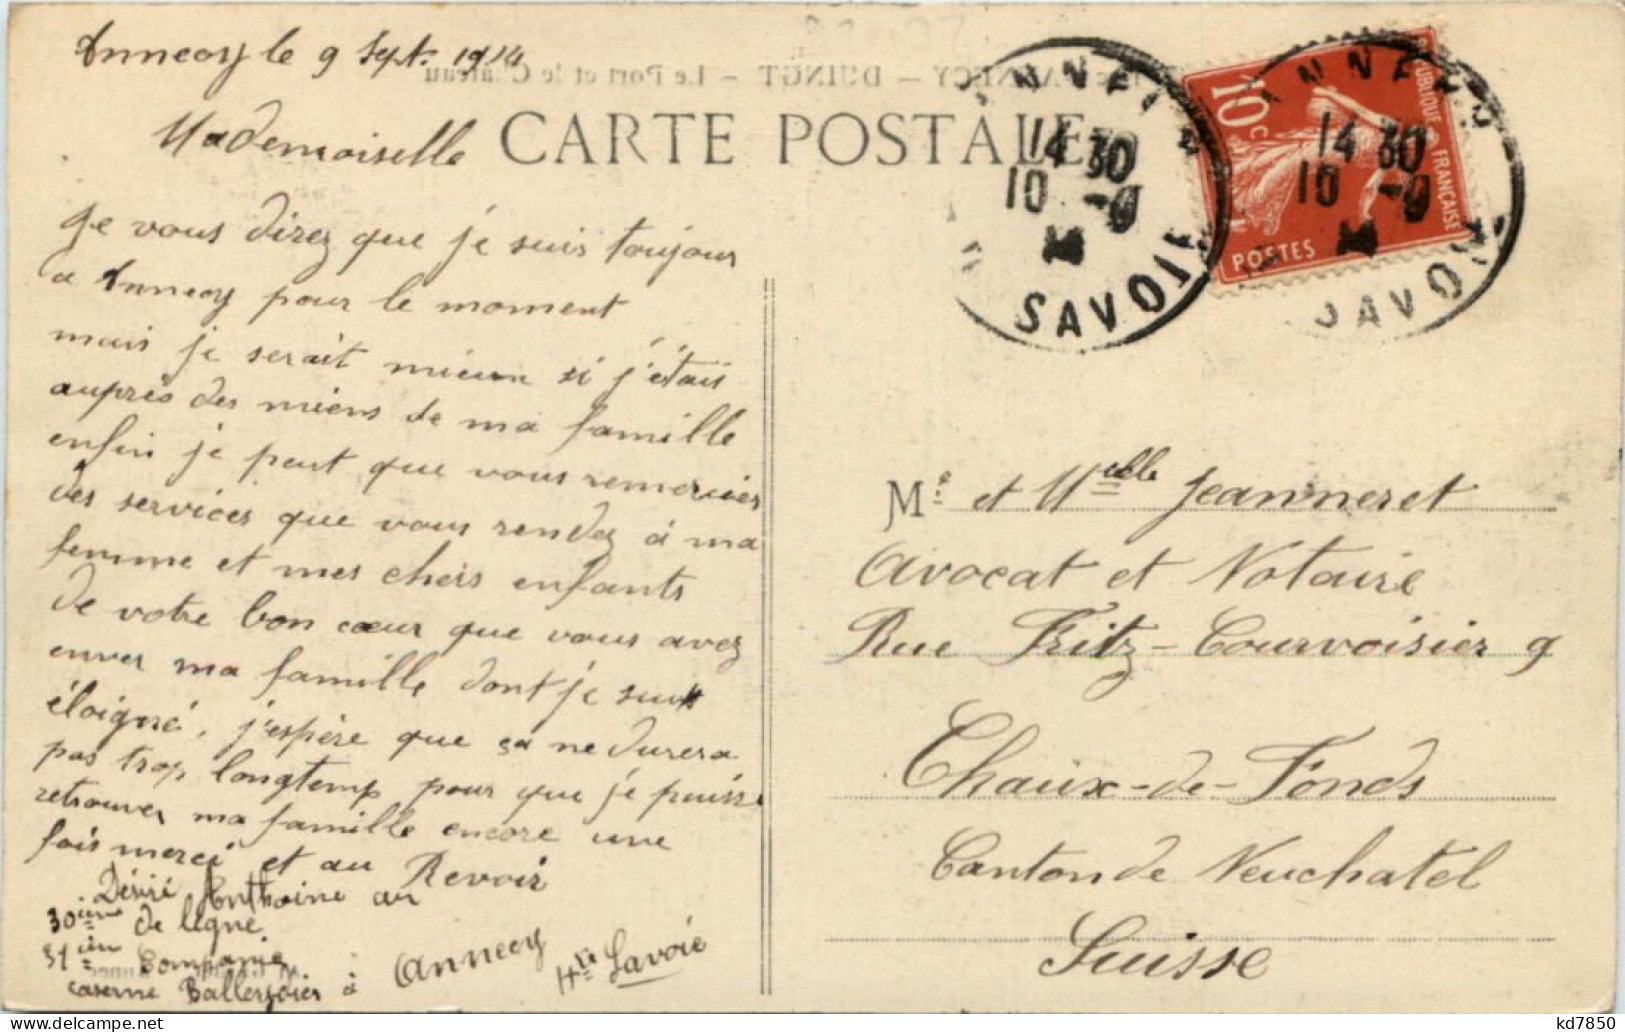 Annecy le 9 Sept. 1914
Mademoiselle
CARTE POSTALE
Je vous direz que je suis toujour
a Annecy pour le moment
mais je serait mieux si j'étais
auprès des miens de ma famille
enfin je peut que vous remercier
des services que vous rendez à ma
femme et mes chers enfants
de votre bon cœur que vous avez
enver ma famille dont je suis
éloigné, j'espère que ça ne durera
pas trop longtemp pour que je puisse
retrouver ma famille encore une
fois merci et au Revoir
Désiré Anthoine au
30ième de ligne
31ième Compagnie
caserne à Annecy Hte Savoie
14 30
10 -9
SAVOIE
10c
REPUBLIQUE FRANÇAISE
POSTES
14 30
10 -9
SAVOIE
M. et Melle Jeanneret
Avocat et Notaire
Rue Fritz-Courvoisier 9
Chaux-de-Fonds
Canton de Neuchatel
Suisse
- DUINGT - Le Port et le Château
kd7850